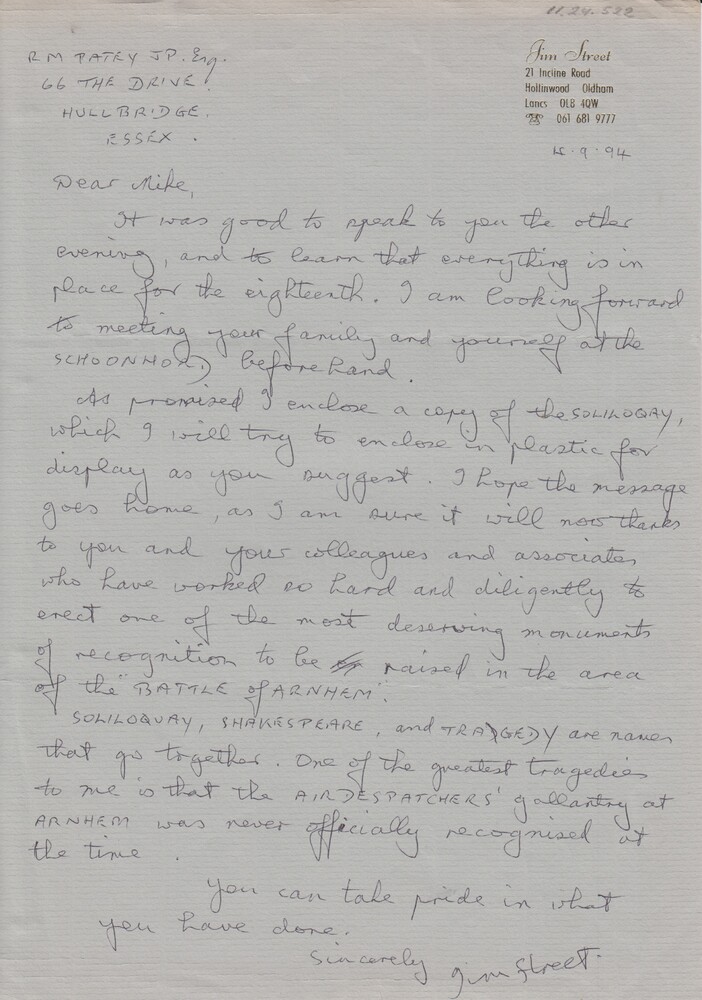 11.24.522
R M PATEY JP. Esq.
66 THE DRIVE.
HULLBRIDGE.
ESSEX.
Jim Street
21 Incline Road
Hollinwood Oldham
Lancs OL8 4QW
☎ 061 681 9777
9.94
Dear Mike,
It was good to speak to you the other
evening, and to learn that everything is in
place for the eighteenth. I am looking forward
to meeting your family and yourself at the
SCHOONHORD beforehand.
As promised I enclose a copy of the SOLILOQAY,
which I will try to enclose in plastic for
display as you suggest. I hope the message
goes home, as I am sure it will now thanks
to you and your colleagues and associates
who have worked so hard and diligently to
erect one of the most deserving monuments
of recognition to be raised in the area
of the "BATTLE of ARNHEM".
SOLILOQUAY, SHAKESPEARE, and TRADGEDY are names
that go together. One of the greatest tragedies
to me is that the AIRDESPATCHERS' gallantry at
ARNHEM was never officially recognised at
the time.
You can take pride in what
you have done.
Sincerely Jim Street.